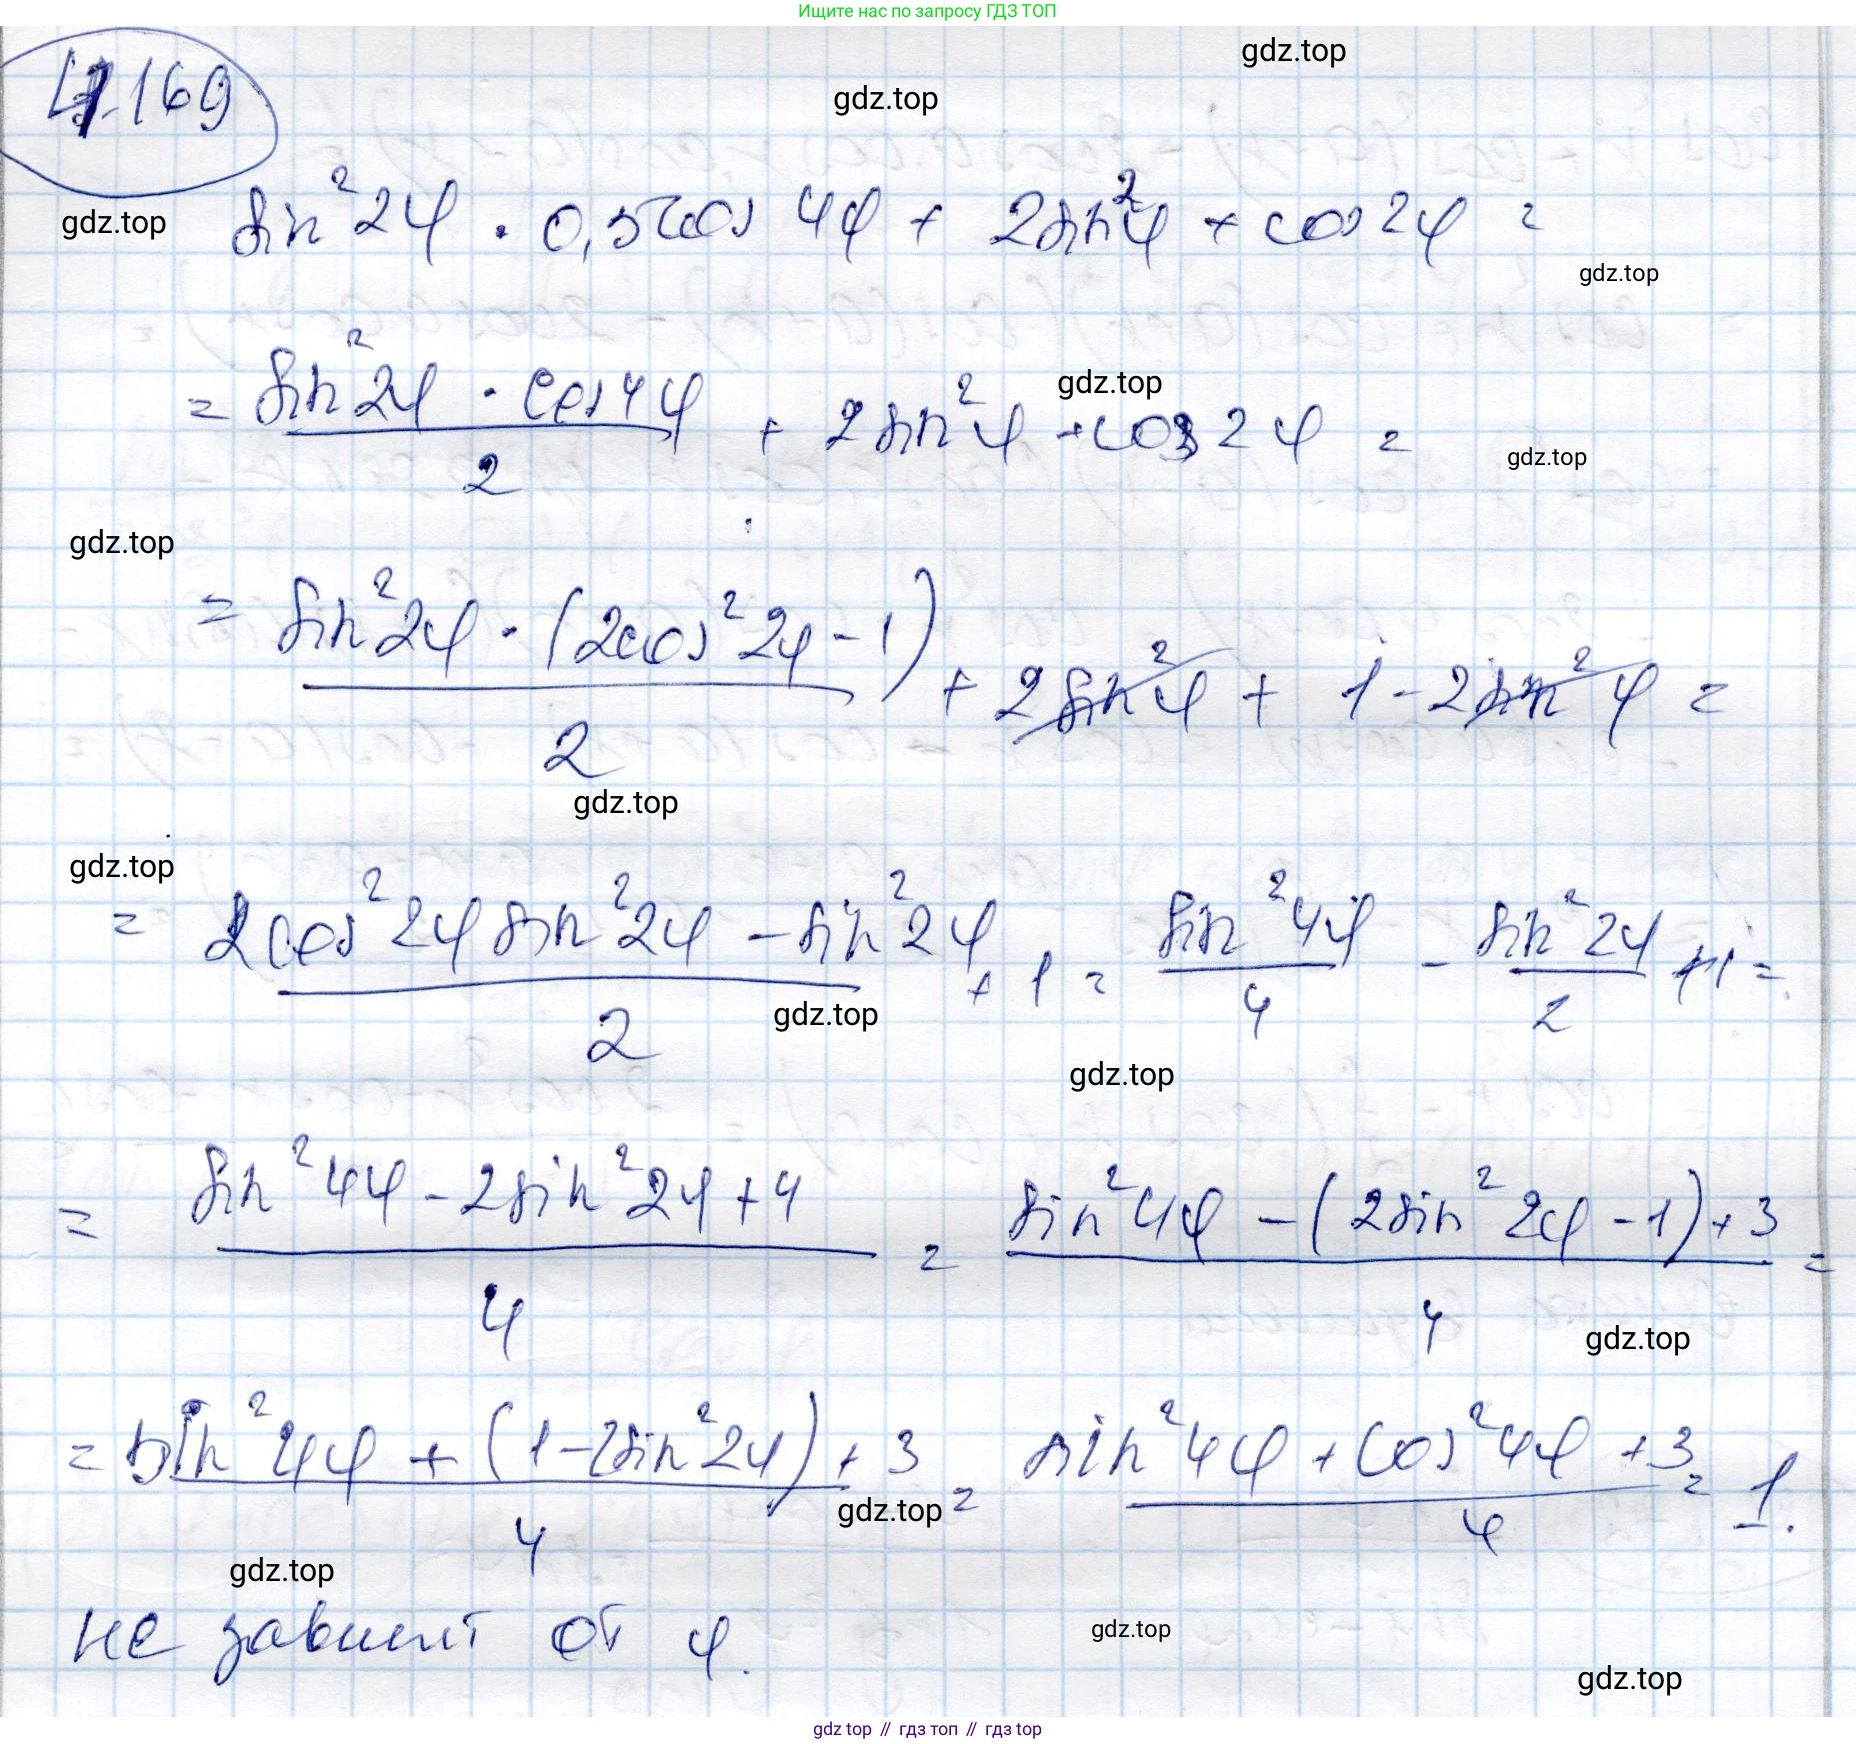 Ищите нас по запросу ГДЗ ТОП
gdz.top
gdz.top
169
gdz.top
sin²2φ · 0,5cos 4φ + 2sin²φ + cos2φ =
gdz.top
= sin²2φ · cos4φ / 2 + 2sin²φ + cos2φ =
gdz.top
gdz.top
gdz.top
= sin²2φ · (2cos²2φ - 1) / 2 + 2sin²φ + 1 - 2sin²φ =
gdz.top
gdz.top
= 2cos²2φ sin²2φ - sin²2φ / 2 + 1 = sin²4φ / 4 - sin²2φ / 2 + 1 =
gdz.top
gdz.top
= sin²4φ - 2sin²2φ + 4 / 4 = sin²4φ - (2sin²2φ - 1) + 3 / 4 =
gdz.top
= sin²4φ + (1 - 2sin²2φ) + 3 / 4 = sin²4φ + cos²4φ + 3 / 4 = 1.
gdz.top
gdz.top
не зависит от φ.
gdz.top
gdz.top
gdz top // гдз топ // гдз top